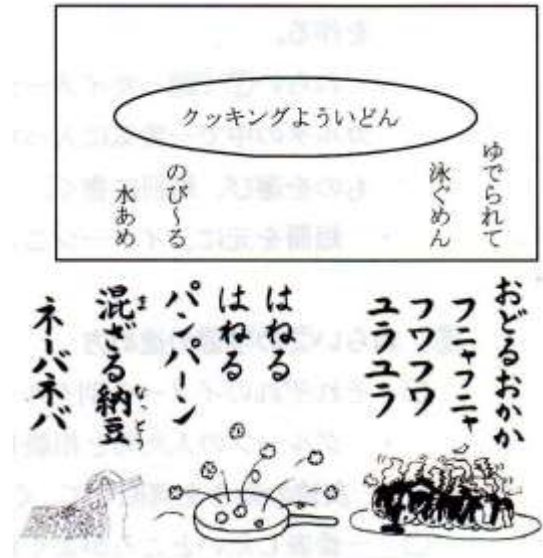 クッキングよういどん
ゆでられて
泳ぐめん
のび〜る
水あめ
おどるおかか
フニャフニャ
フワフワ
ユラユラ
はねる
はねる
パ・パ・パーン
混ざる納豆
ま
なっとう
ネーバネバ